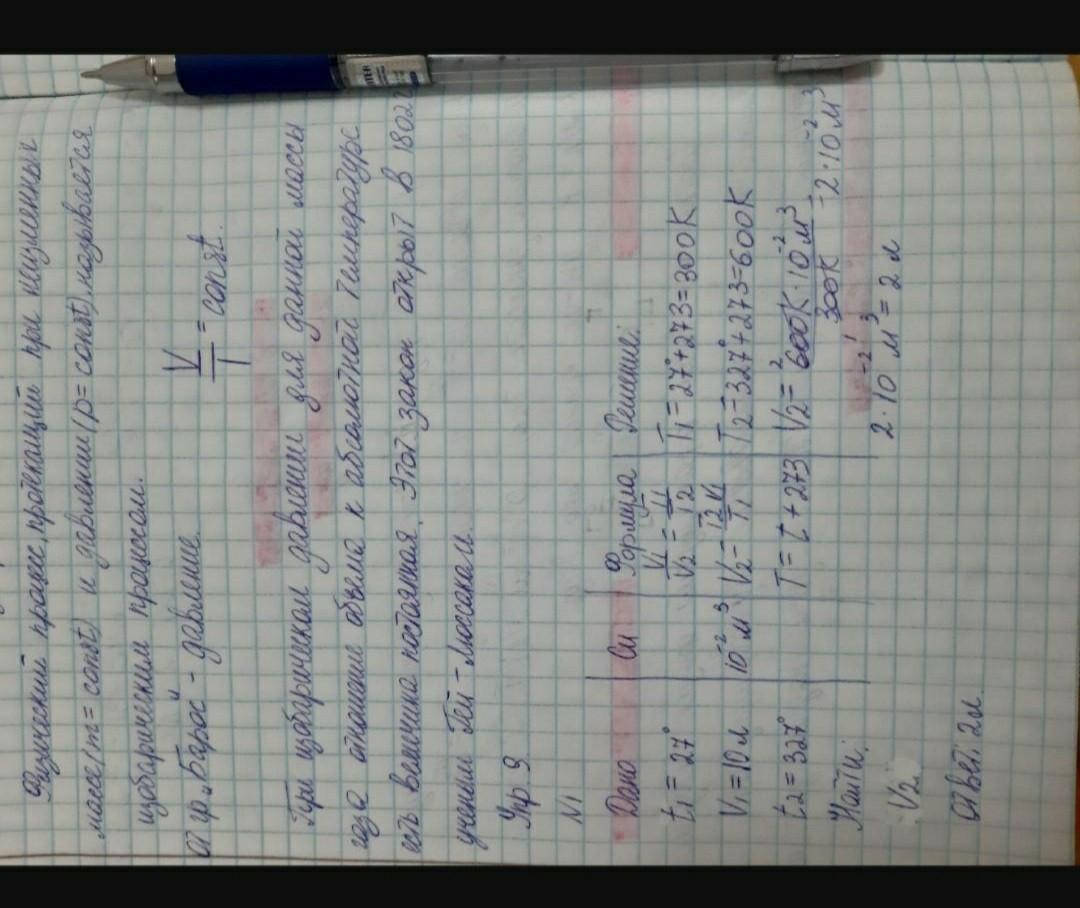 Физический процес, протекающий при неизменных
массе (m = const) и давлении (p = const), называется
изобарическим процессом.
от гр. „Барос" - давление.
V/T = const.
При изобарическом давлении для данной массы
газа отношение объема к абсолютной температуре
есть величина постоянная. Этот закон открыт в 1802г
ученым Гей-Люссаком.
Упр 9.
N1
Дано Си Формула Решение:
t1 = 27° V1/V2 = T1/T2 T1 = 27°+273=300K
V1 = 10л 10⁻² м³ V2 = T2V1/T1 T2=327°+273=600K
t2 = 327° T = t + 273 V2 = 600K·10⁻² м³/300K = 2·10⁻² м³
Найти: 2·10⁻² м³ = 2 л
V2
Ответ: 2л